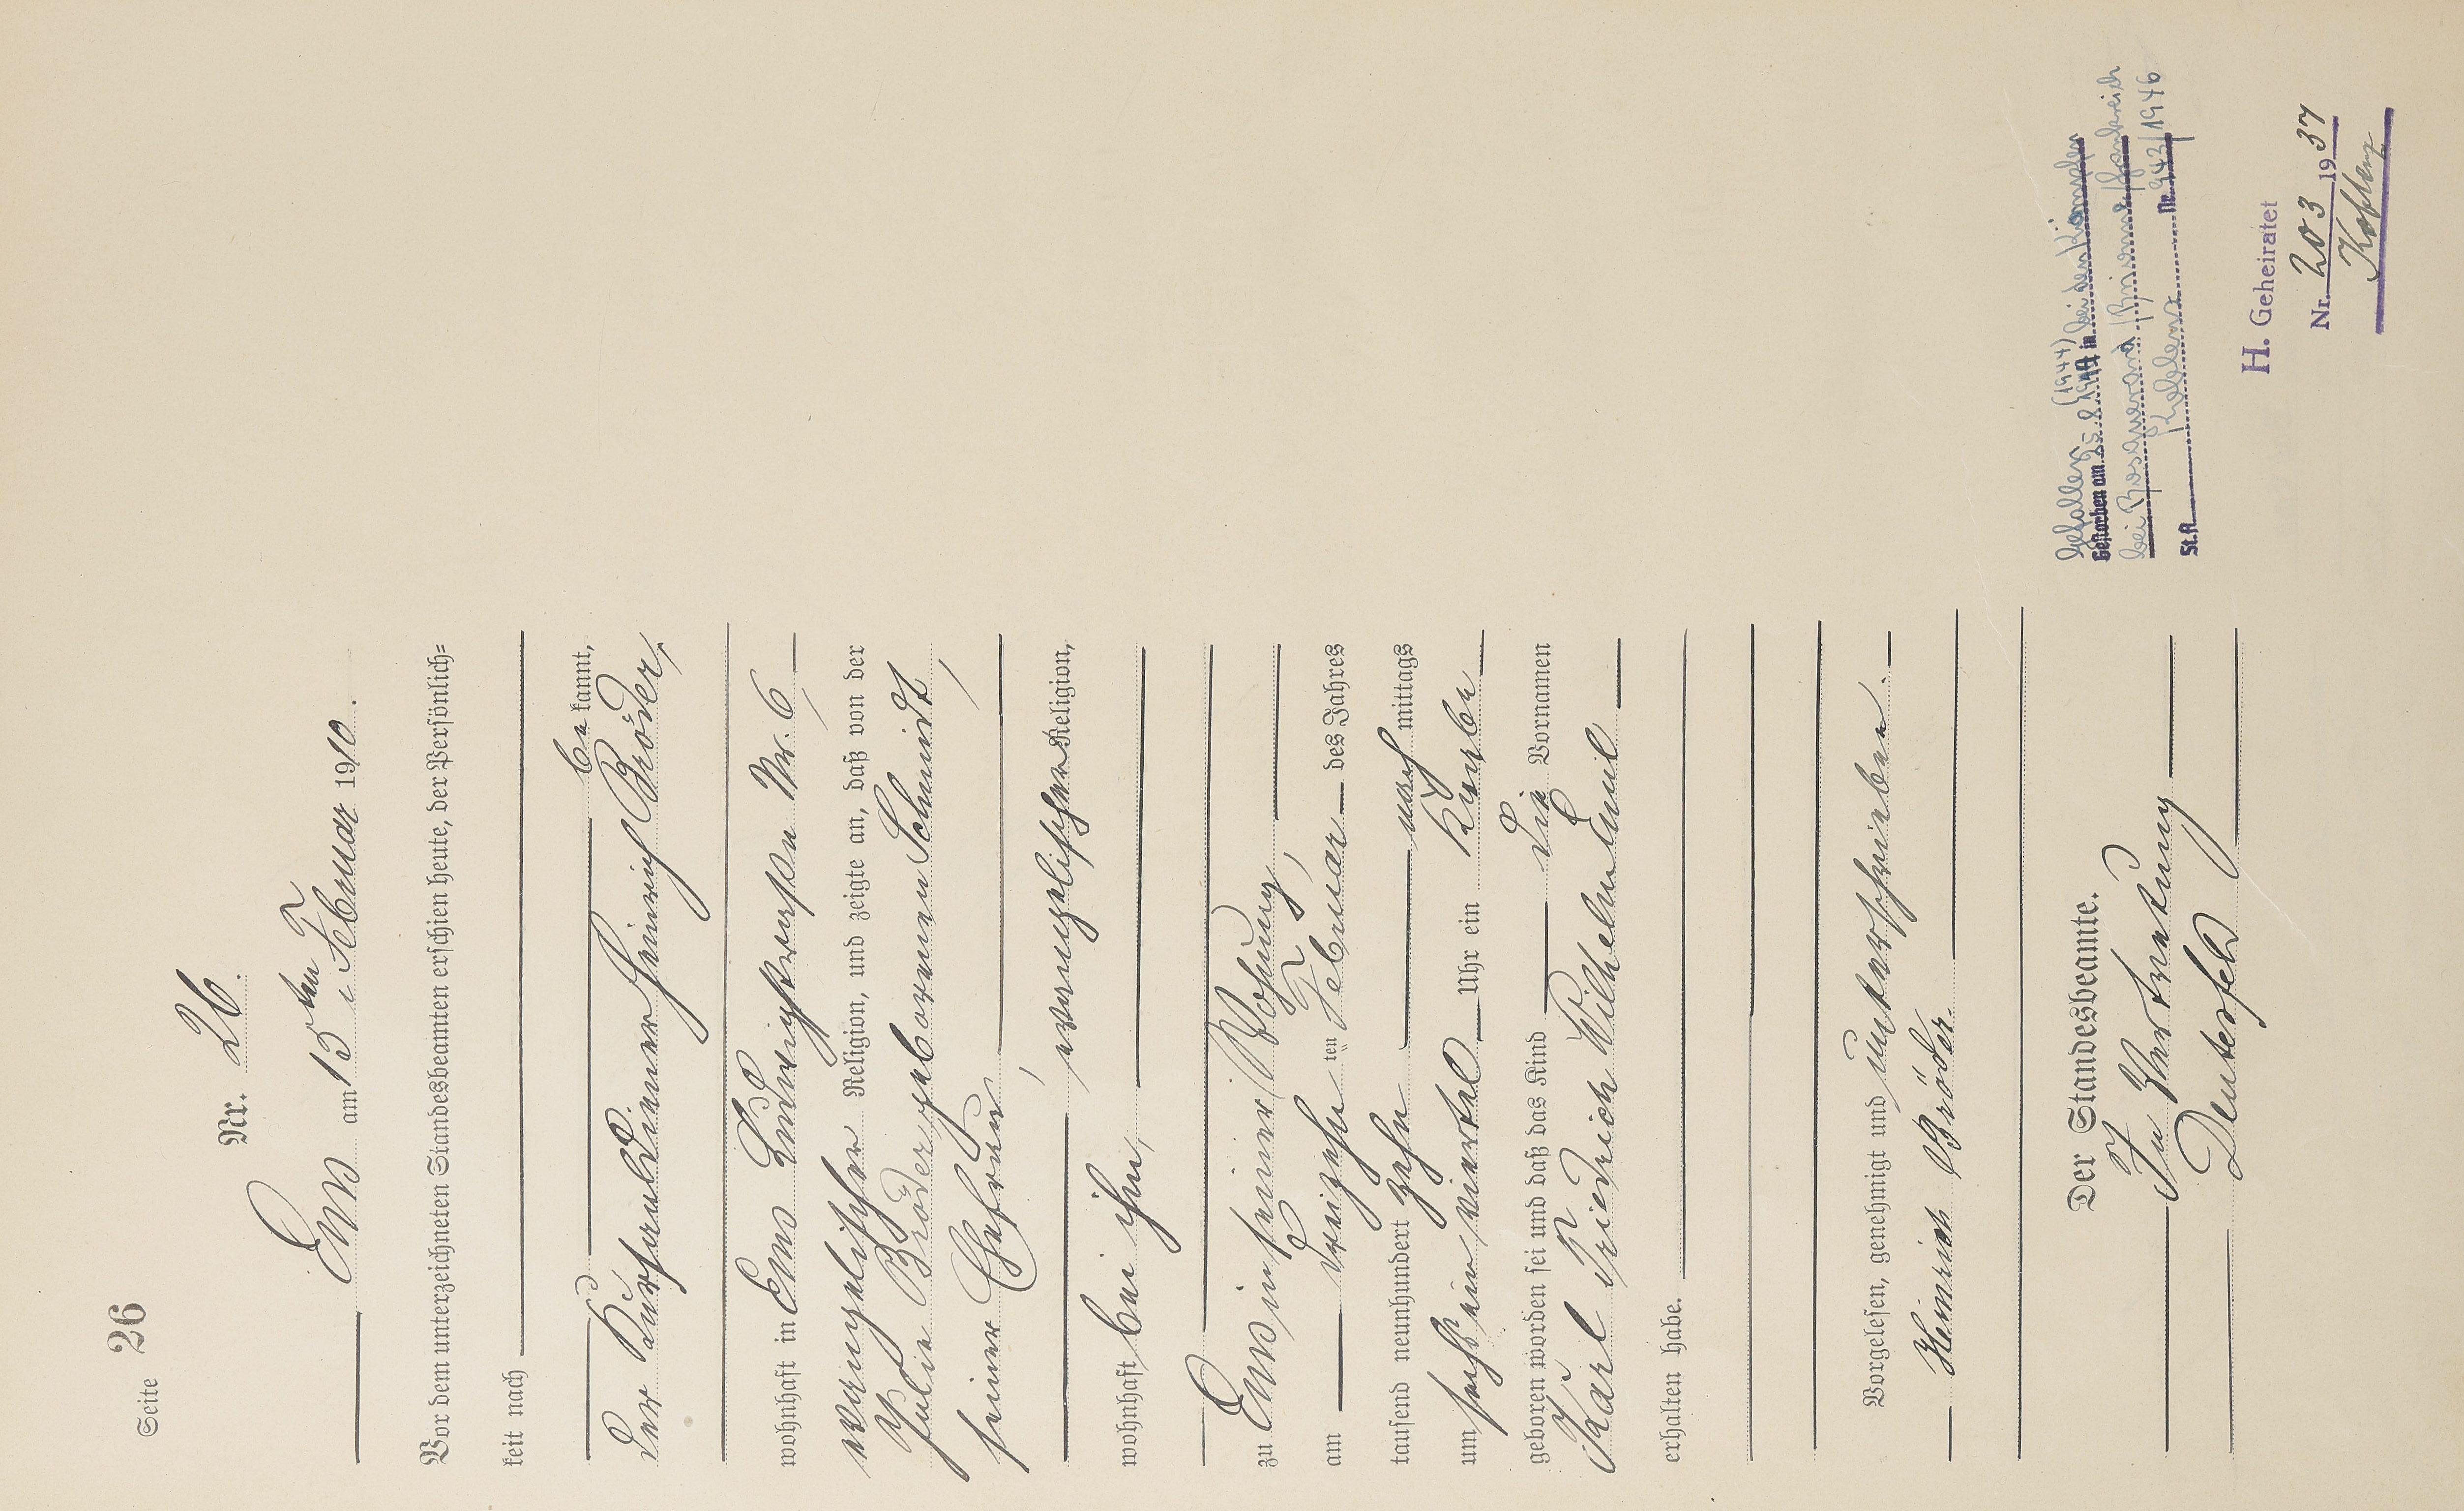 Seite 26
Nr. 26.
Ems am 15ten Februar 1910.
Vor dem unterzeichneten Standesbeamten erschien heute, der Persönlich=
keit nach
be kannt,
der Kursaaldiener Heinrich Bröder,
wohnhaft in Ems Ludwigstraße Nr. 6,
evangelischer Religion, und zeigte an, daß von der
Julie Bröder geborenen Schmidt,
seiner Ehefrau,
evangelischer Religion,
wohnhaft bei ihm,
zu Ems in seiner Wohnung,
am dreizehn ten Februar des Jahres
tausend neunhundert zehn nach mittags
um sechs einviertel Uhr ein Knabe
geboren worden sei und daß das Kind die Vornamen
Karl Friedrich Wilhelm Emil
erhalten habe.
Vorgelesen, genehmigt und unterschrieben.
Heinrich Bröder.
Der Standesbeamte.
In Vertretung
Deusterfeld
Gefallen (1944)
Gestorben am 25.8 1944 in bei den Kämpfen
bei /Frankreich
St.A. Koblenz Nr. 943/1946
H. Geheiratet
Nr. 203 1937
Koblenz